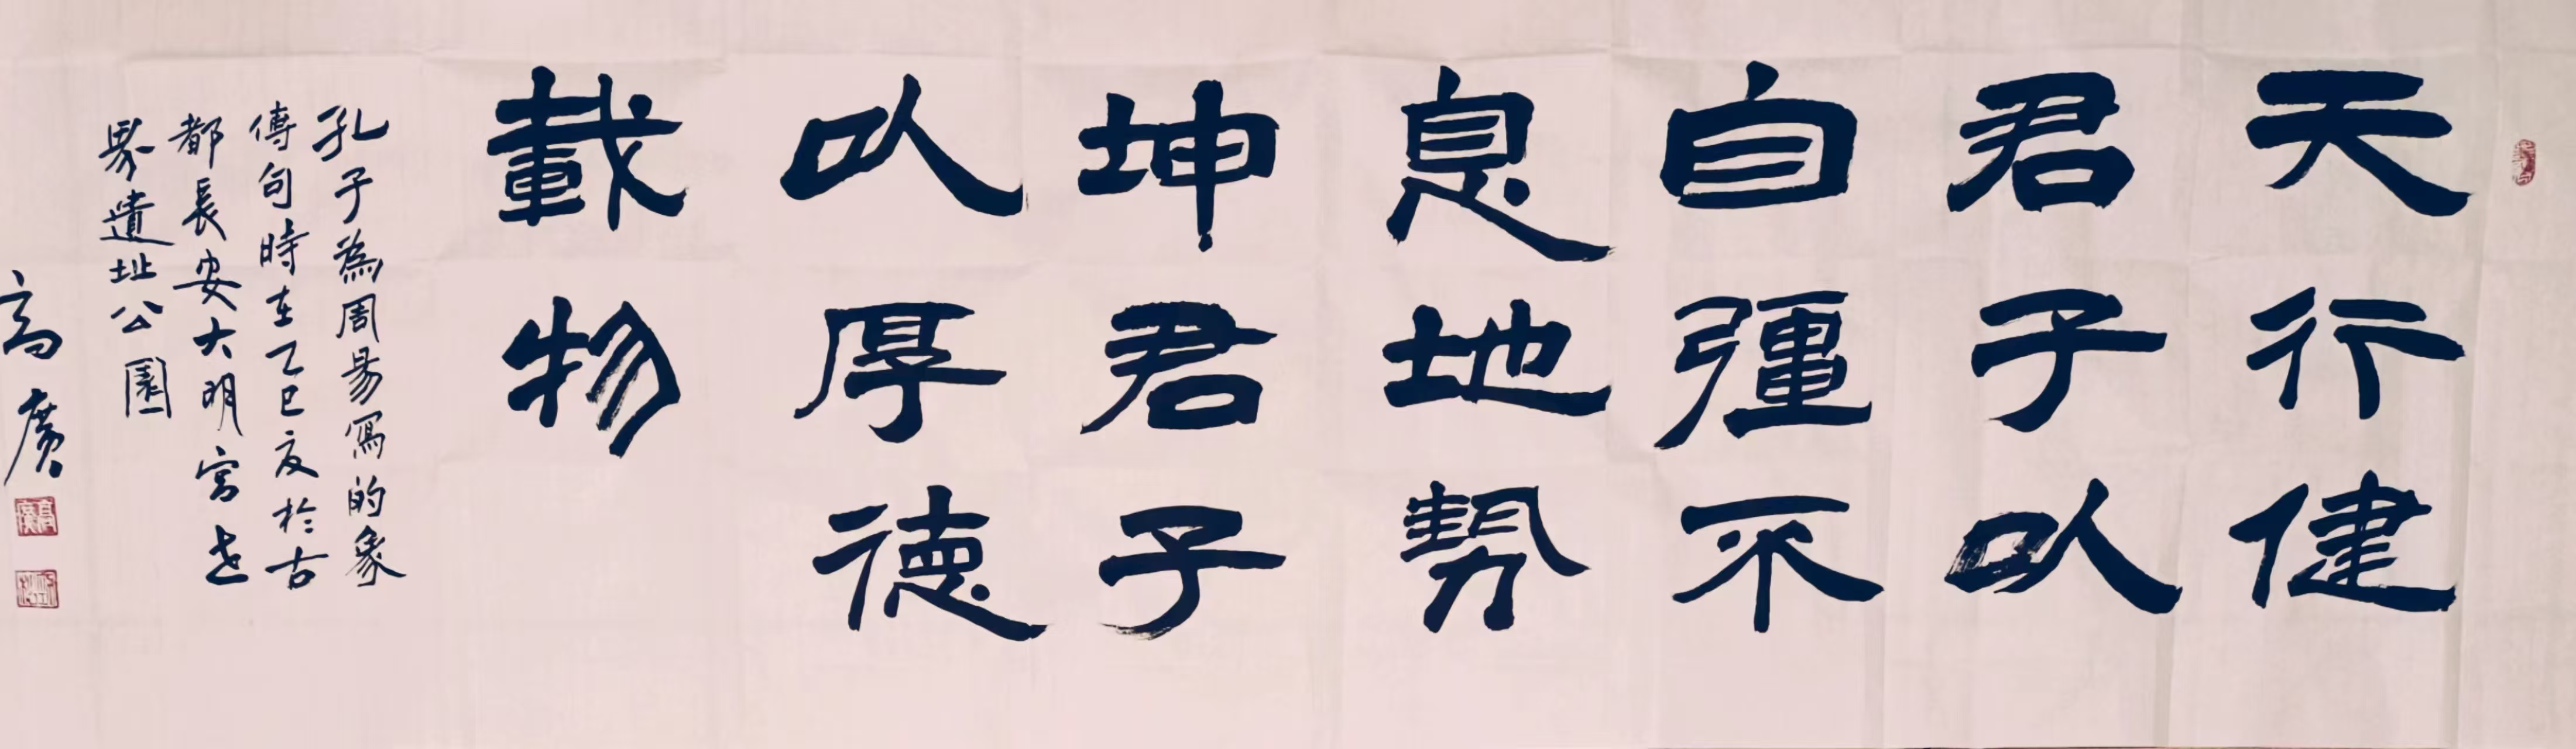 天行健
君子以
自彊不
息地勢
坤君子
以厚德
載物
孔子為周易寫的象
傳句時在乙巳夏於古
都長安大明宮世
界遺址公園
高廣
高廣